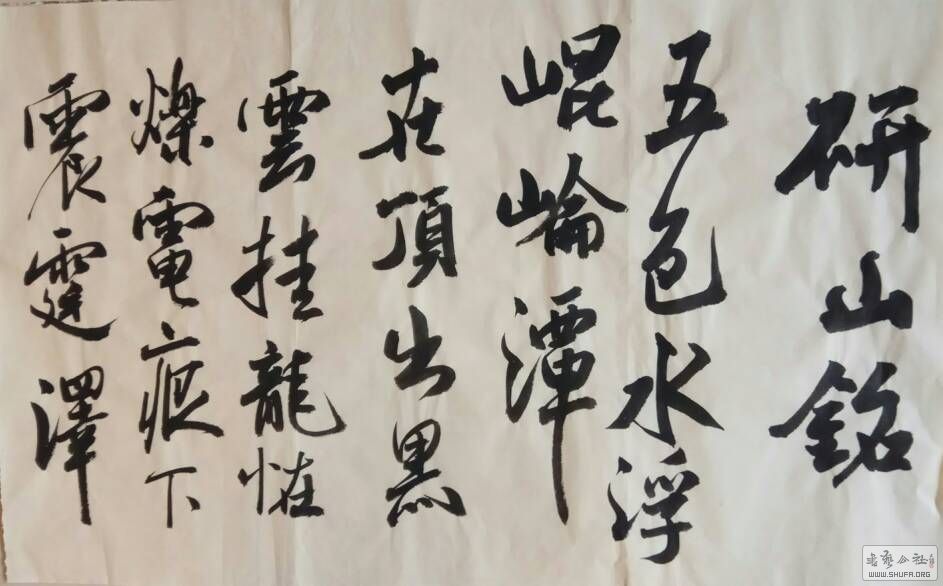 研山銘
五色水浮
崐崘潭
在頂出黑
雲挂龍恠
爍電痕下
震霆澤
書藝公社
WWW.SHUFA.ORG